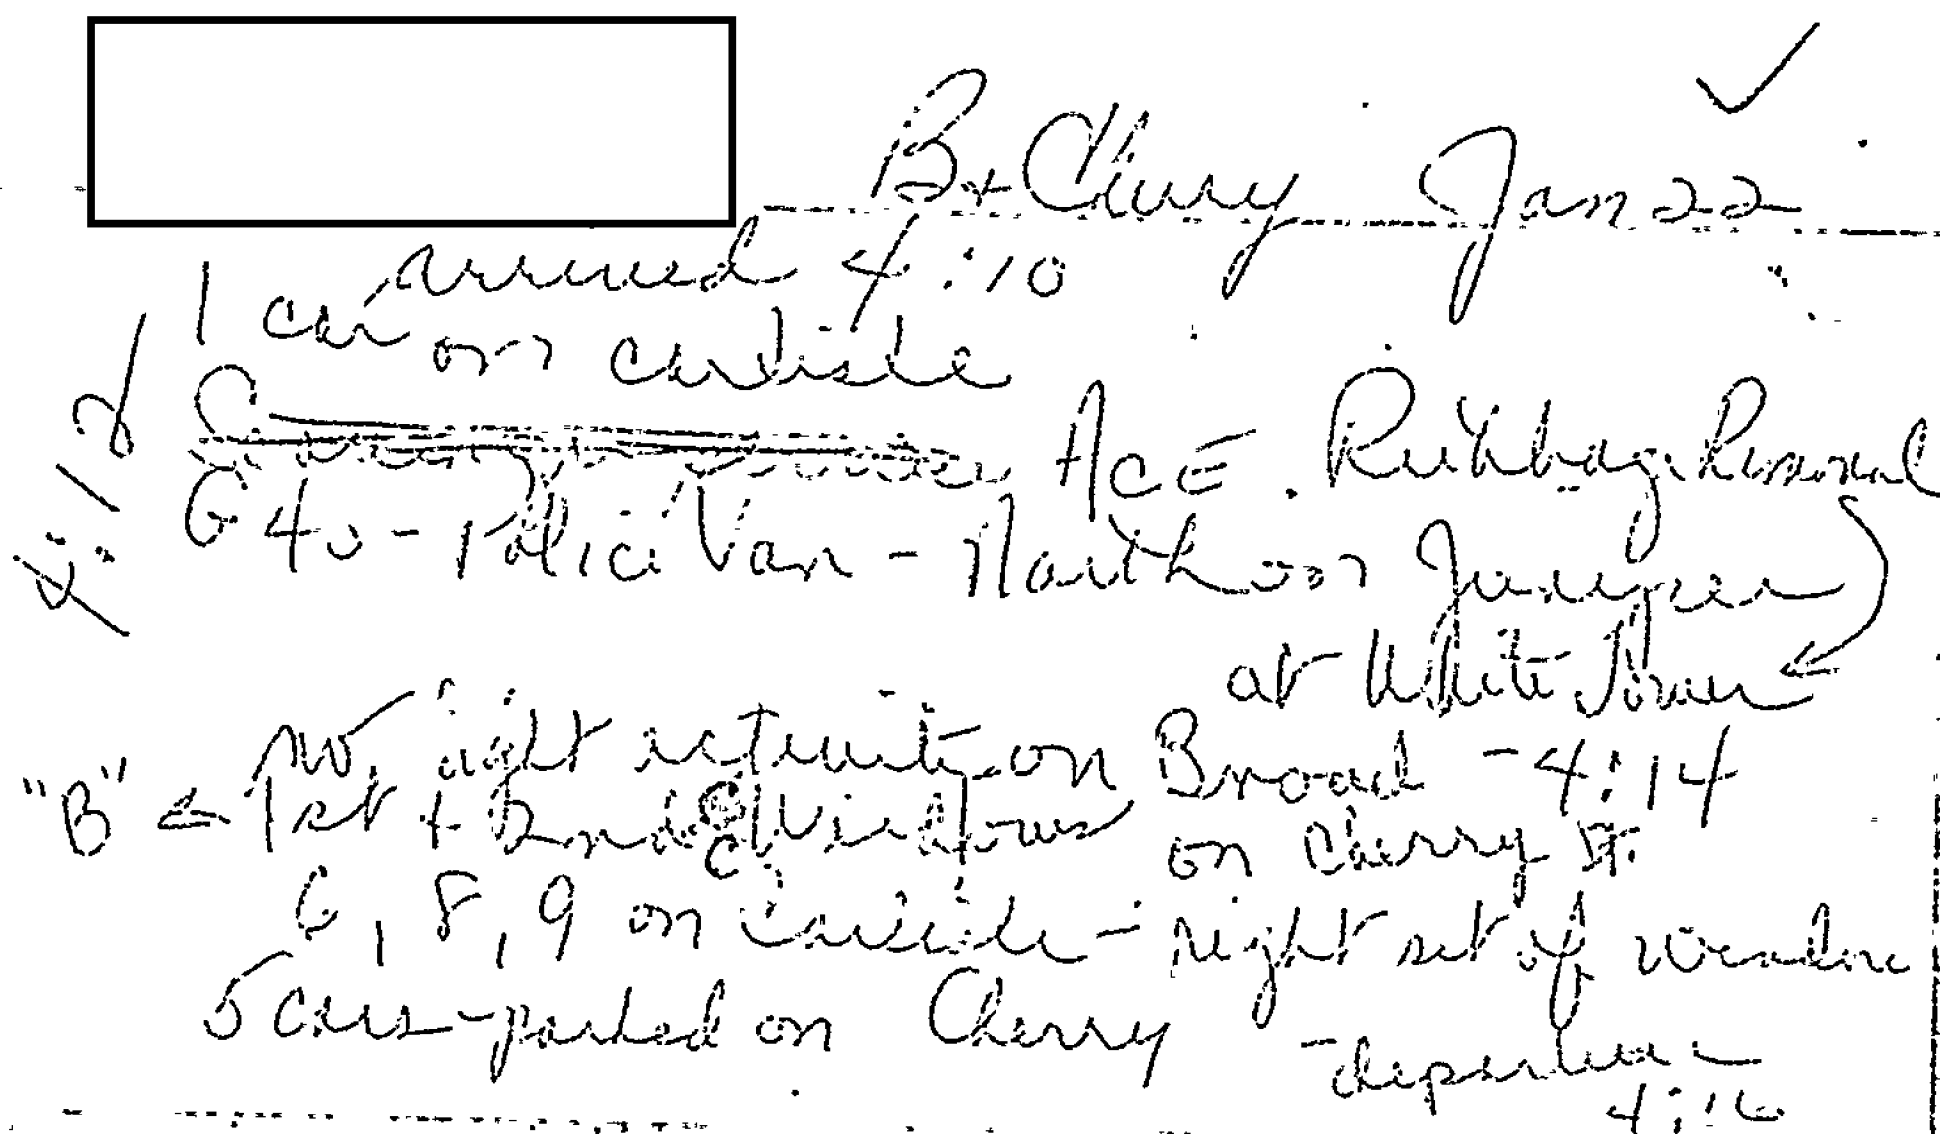 B + Cherry Jan 22
arrived 4:10
1 car on carlisle
4:12
ACE. Rubbage Removal
G 40 - Police Van - North on Juniper
at White Tower
no light activity on Broad - 4:14
"B" 1st + 2nd Windows on Cherry St.
6, 8, 9 on Carlisle - right set of window
5 cars - parked on Cherry
- departure
4:16